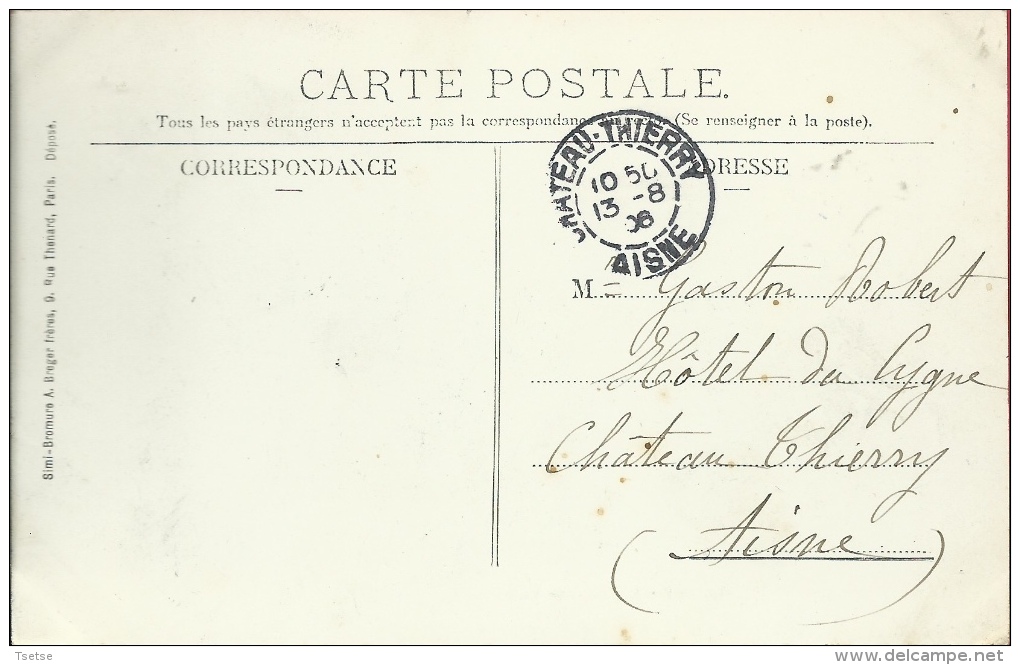 CARTE POSTALE.
Tous les pays étrangers n'acceptent pas la correspondance (Se renseigner à la poste).
CORRESPONDANCE
ADRESSE
CHATEAU-THIERRY
10 50
13 -8
08
AISNE
M. Gaston Robert
Hôtel du Cygne
Château Thierry
(Aisne)
Simi-Bromure A. Breger frères, 9. Rue Thenard, Paris. Déposé.
Tsetse
www.delcampe.net